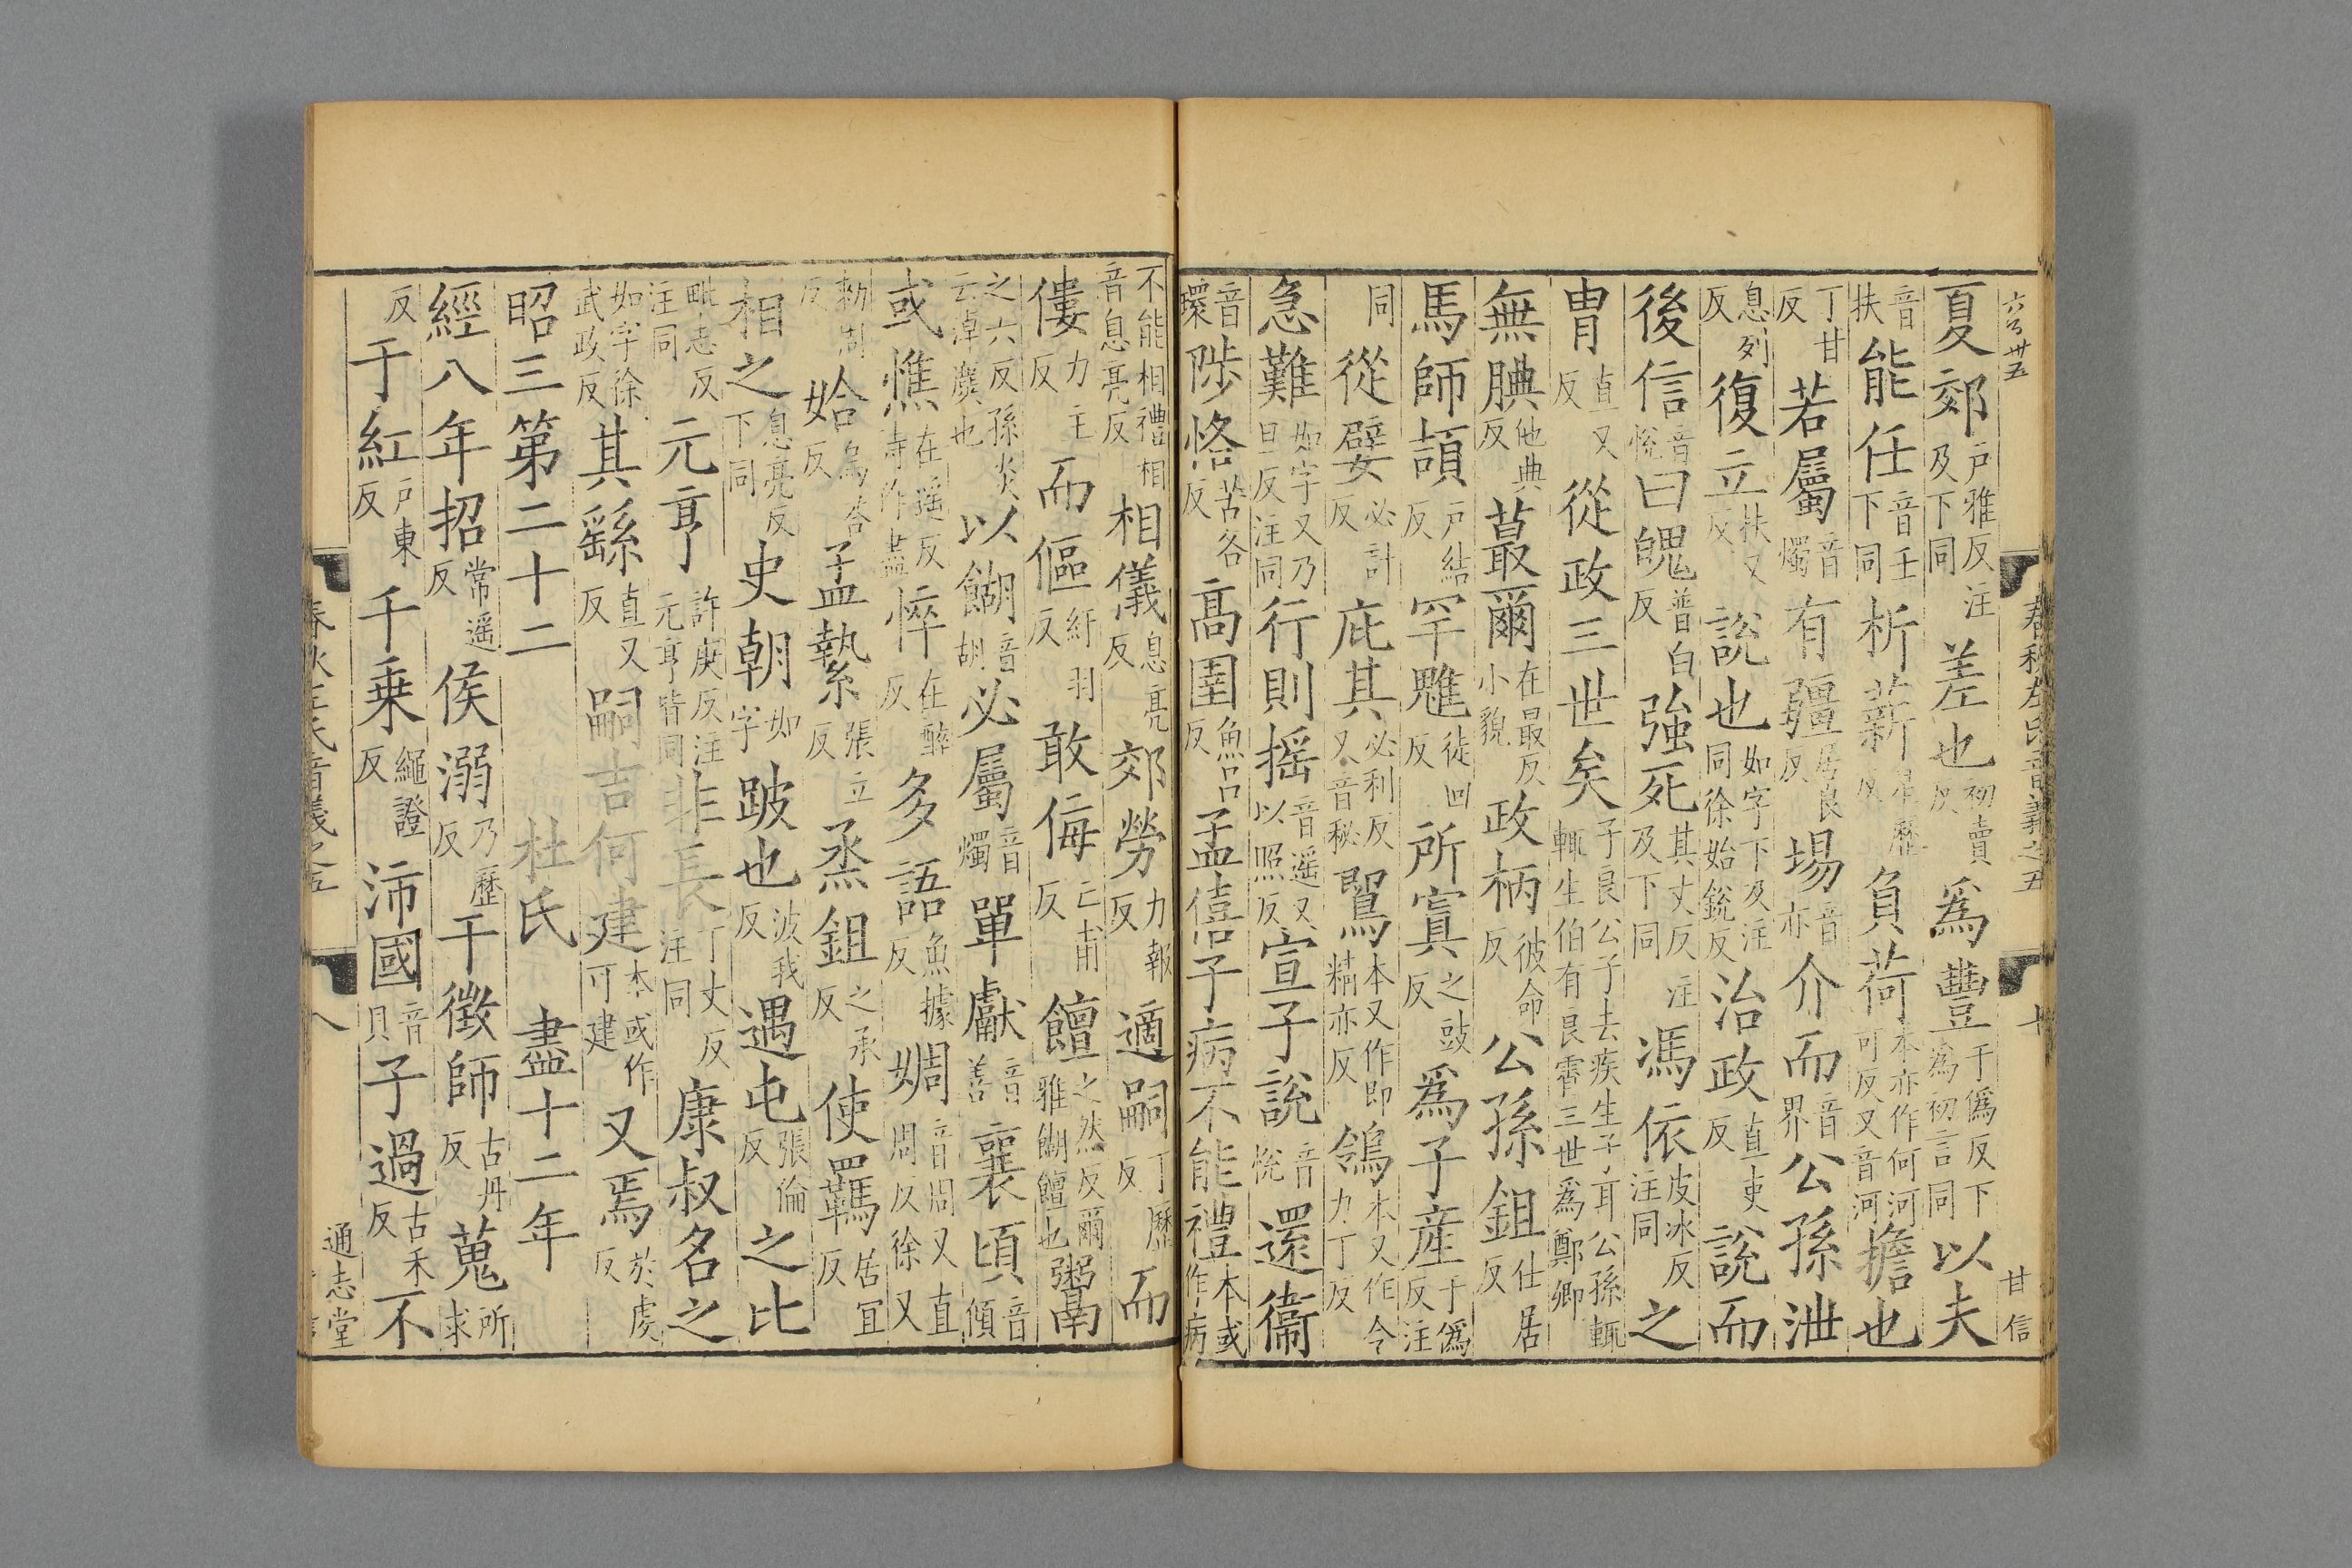 六百卅五
春秋左氏音義之五
甘信
夏郊戶雅反注及下同差也初賣反爲豐于僞反下爲初言同以夫
音扶能任音壬下同析薪星歷反負荷本亦作何河可反又音河擔也
丁甘反若屬音燭有疆居良反場音亦介而音界公孫泄
息列反復立扶又反說也如字下及注同徐始銳反治政直吏反說而
後信音悅曰魄普白反強死其丈反注及下同馮依皮冰反注同之
胄直又反從政三世矣子良公子去疾生子耳公孫輒輒生伯有良霄三世爲鄭卿
無腆他典反蕞爾在最反小貌政柄彼命反公孫鉏仕居反
馬師頡戶結反罕魋徒回反所寘之豉反爲子產于僞反注
同從嬖必計反庇其必利反又音秘鴛本又作即精亦反鴒本又作令力丁反
急難如字又乃旦反注同行則搖音遥又以照反宣子說音悅還衞
音環陟恪苦各反高圉魚呂反孟僖子病不能禮本或作病
不能相禮相音息亮反相儀息亮反郊勞力報反適嗣丁歷反而
僂力主反而傴紆羽反敢侮亡甫反饘之然反爾雅餬饘也鬻
之六反孫炎云淖糜也以餬音胡必屬音燭單獻音善襄頃音傾
或憔在遥反詩作盡悴在醉反多語魚據反婤音周又直周反徐又
勑周反姶烏荅反孟縶張立反烝鉏之承反使羈居宜反
相之息亮反下同史朝如字跛也波我反遇屯張倫反之比
毗志反注同元亨許庚反注元亨皆同非長丁丈反注同康叔名之
如字徐武政反其繇直又反嗣吉何建本或作可建又焉於虔反
昭三第二十二　杜氏　盡十二年
經八年招常遥反侯溺乃歷反干徵師古丹反蒐所求
反于紅戶東反千乘繩證反沛國音貝子過古禾反不
春秋左氏音義之五　八
通志堂